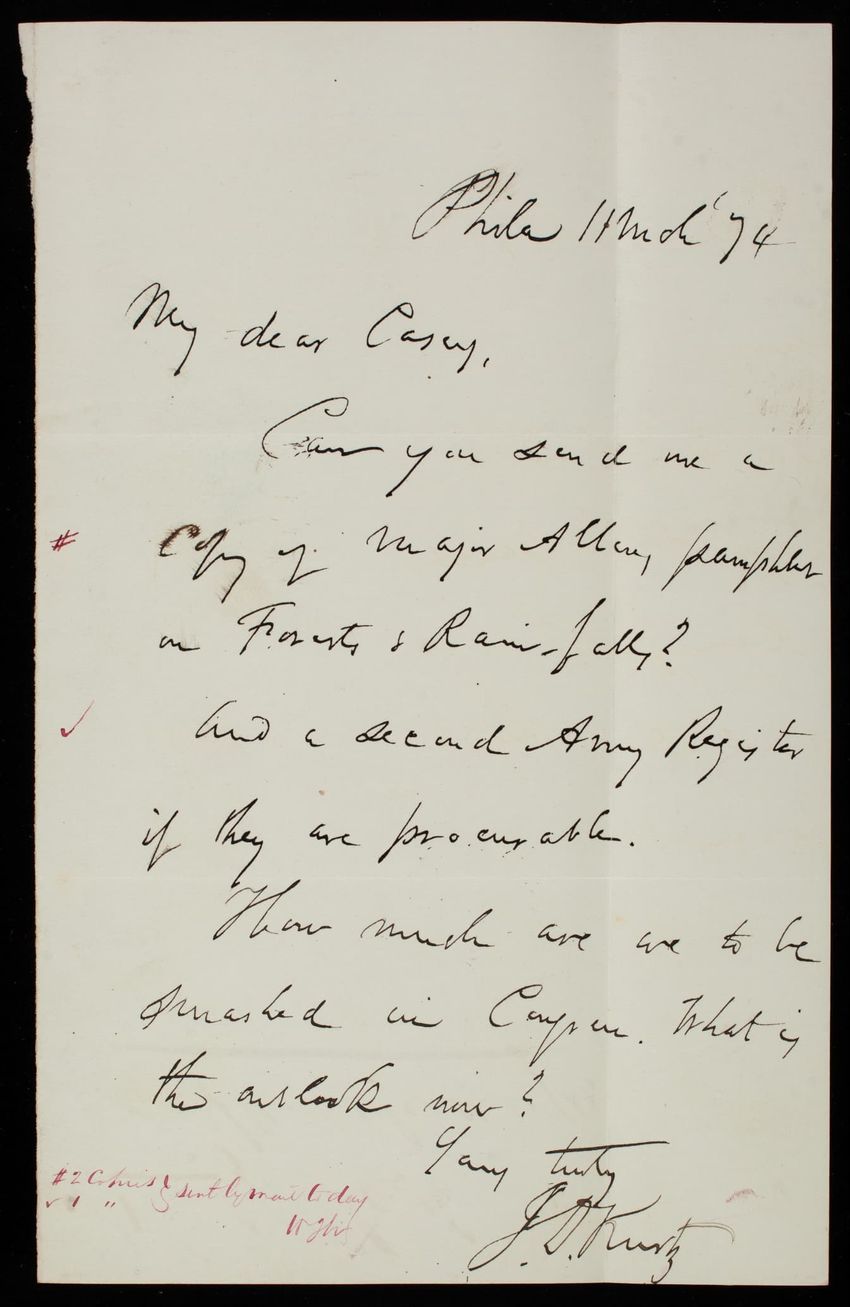 Phila 11 Mch '74
My dear Casey,
Can you send me a
# Copy of Major Allens pamphlet
on Forests & Rain-falls?
✓ And a second Army Register
if they are procurable.
How much are we to be
smashed in Congress. What is
the outlook now?
Yours truly
J. D. Kurtz
# 2 Copies } sent by mail today
✓ 1 "